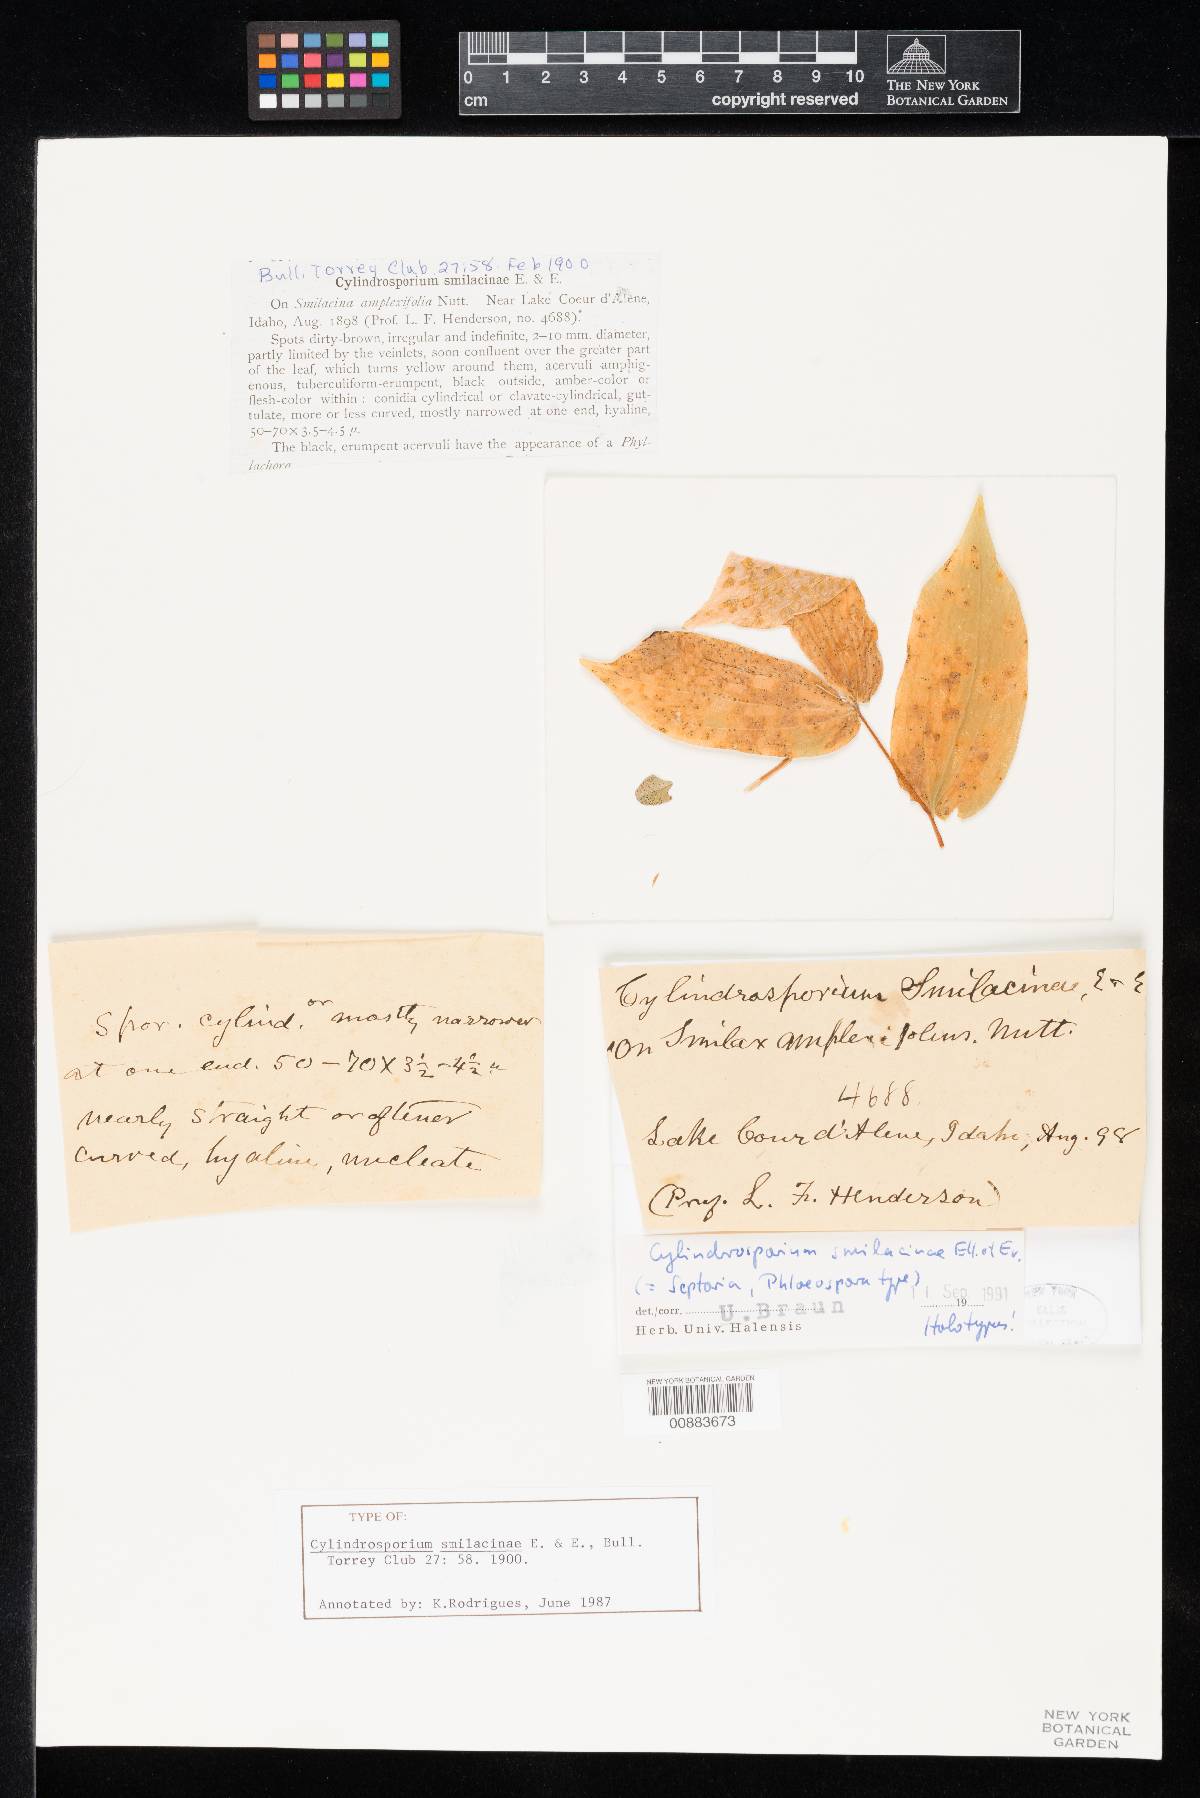 0 1 2 3 4 5 6 7 8 9 10
cm
copyright reserved
THE NEW YORK
BOTANICAL GARDEN
Bull. Torrey Club 27:58 Feb 1900
Cylindrosporium smilacinae E. & E.
On Smilacina amplexifolia Nutt. Near Lake Coeur d'Alene,
Idaho, Aug. 1898 (Prof. L. F. Henderson, no. 4688).
Spots dirty-brown, irregular and indefinite, 2–10 mm. diameter,
partly limited by the veinlets, soon confluent over the greater part
of the leaf, which turns yellow around them, acervuli amphig-
enous, tuberculiform-erumpent, black outside, amber-color or
flesh-color within: conidia cylindrical or clavate-cylindrical, gut-
tulate, more or less curved, mostly narrowed at one end, hyaline,
50–70 × 3.5–4.5 µ.
The black, erumpent acervuli have the appearance of a Phyl-
lachora
Spor. cylind. or mostly narrower
at one end. 50–70 X 3½–4½ µ
nearly straight or oftener
curved, hyaline, nucleate
Cylindrosporium Smilacinae, E & E
On Smilax amplexifolius. Nutt.
4688
Lake Coeur d'Alene, Idaho, Aug. 98
(Prof. L. F. Henderson)
Cylindrosporium smilacinae Ell. et Ev.
(= Septoria, Phloeospora type)
11 Sep. 1991
det./corr. U. Braun 19
Herb. Univ. Halensis
Holotypus!
NEW YORK
ELLIS
COLLECTION
NEW YORK BOTANICAL GARDEN
00883673
TYPE OF:
Cylindrosporium smilacinae E. & E., Bull.
Torrey Club 27: 58. 1900.
Annotated by: K.Rodrigues, June 1987
NEW YORK
BOTANICAL
GARDEN